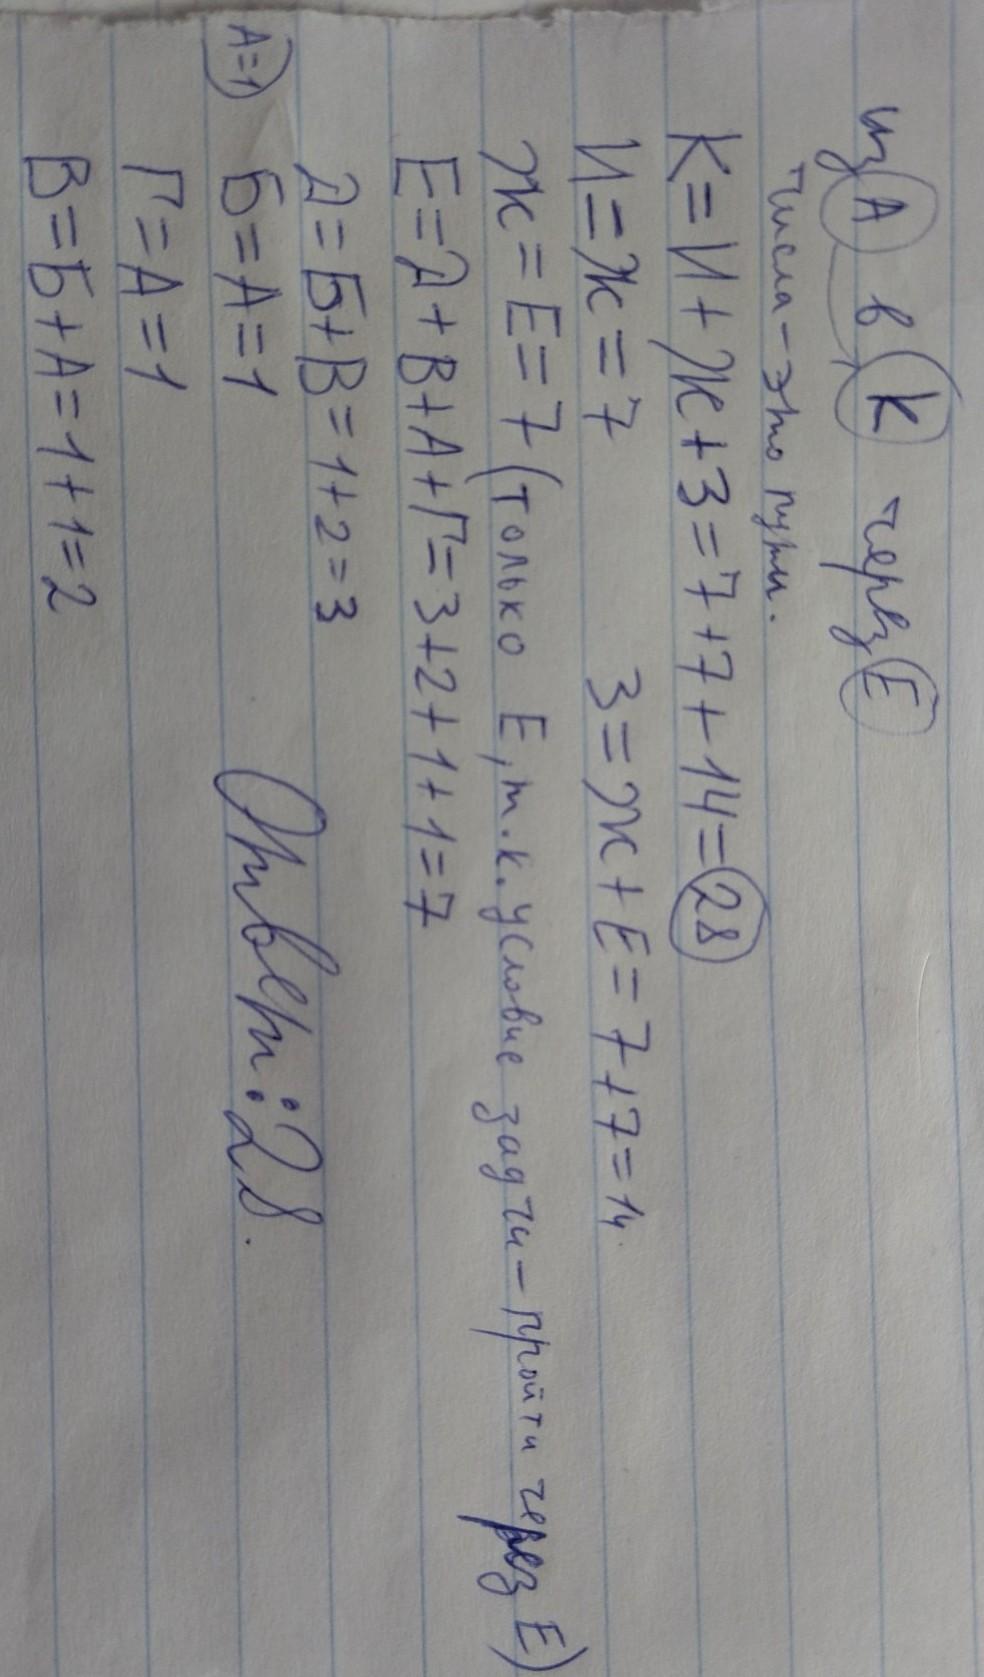 из А в К через Е
числа - это пути.
К = И + Ж + З = 7 + 7 + 14 = 28
И = Ж = 7 З = Ж + Е = 7 + 7 = 14
Ж = Е = 7 (только Е, т.к. условие задачи - пройти через Е)
Е = Д + В + А + Г = 3 + 2 + 1 + 1 = 7
Д = Б + В = 1 + 2 = 3
А = 1 Б = А = 1 Ответ: 28.
Г = А = 1
В = Б + А = 1 + 1 = 2